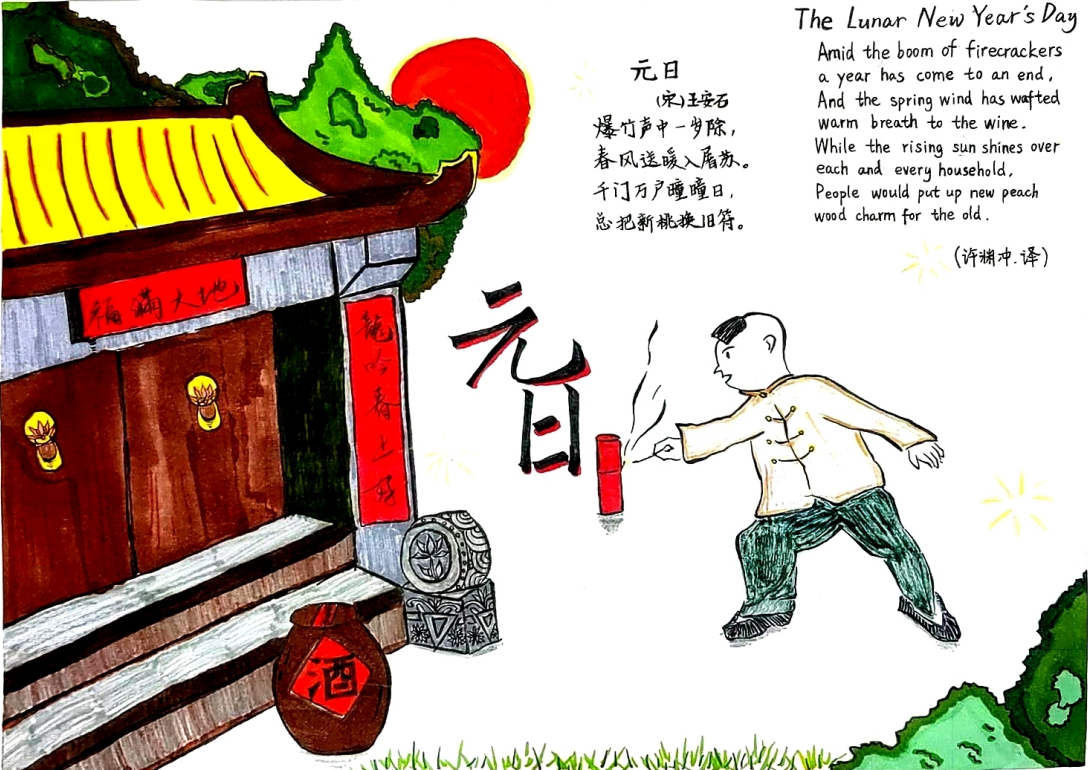 The Lunar New Year's Day
Amid the boom of firecrackers
a year has come to an end,
And the spring wind has wafted
warm breath to the wine.
While the rising sun shines over
each and every household,
People would put up new peach
wood charm for the old.
(许渊冲.译)
元日
(宋)王安石
爆竹声中一岁除，
春风送暖入屠苏。
千门万户曈曈日，
总把新桃换旧符。
福满大地
龍吟春
元日
酒